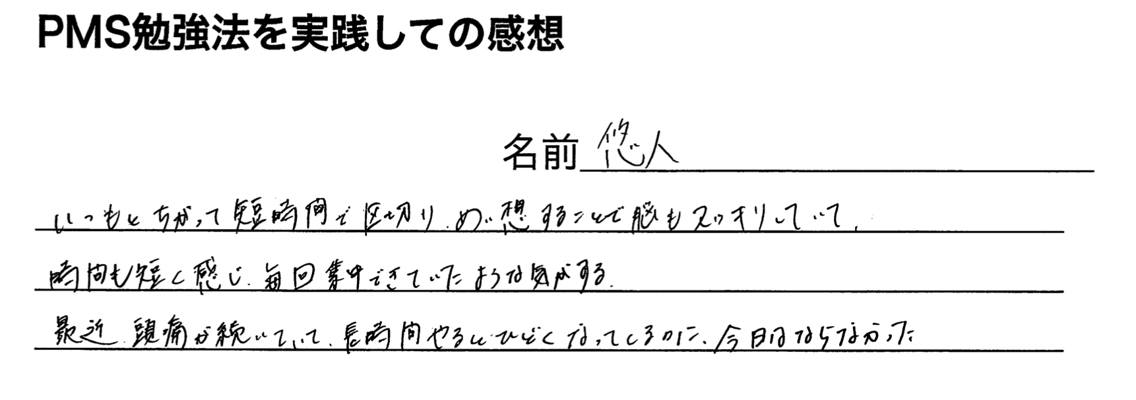 PMS勉強法を実践しての感想
名前 悠人
いつもとちがって短時間で区切り、めい想することで脳もスッキリしていて、
時間も短く感じ、毎回集中できていたような気がする。
最近、頭痛が続いていて、長時間やるとひどくなってくるのに、今日はならなかった